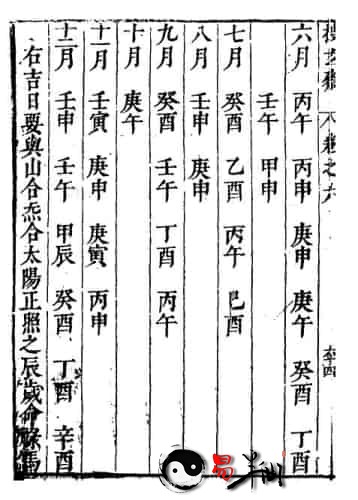 卷之六
六月 丙午 丙申 庚申 庚午 癸酉 丁酉
壬午 甲申
七月 癸酉 乙酉 丙午 己酉
八月 壬申 庚申
九月 癸酉 壬午 丁酉 丙午
十月 庚午
十一月 壬寅 庚申 庚寅 丙申
十二月 壬申 壬午 甲辰 癸酉 丁酉 辛酉
右吉日要與山合炁合太陽正照之辰歲命
易